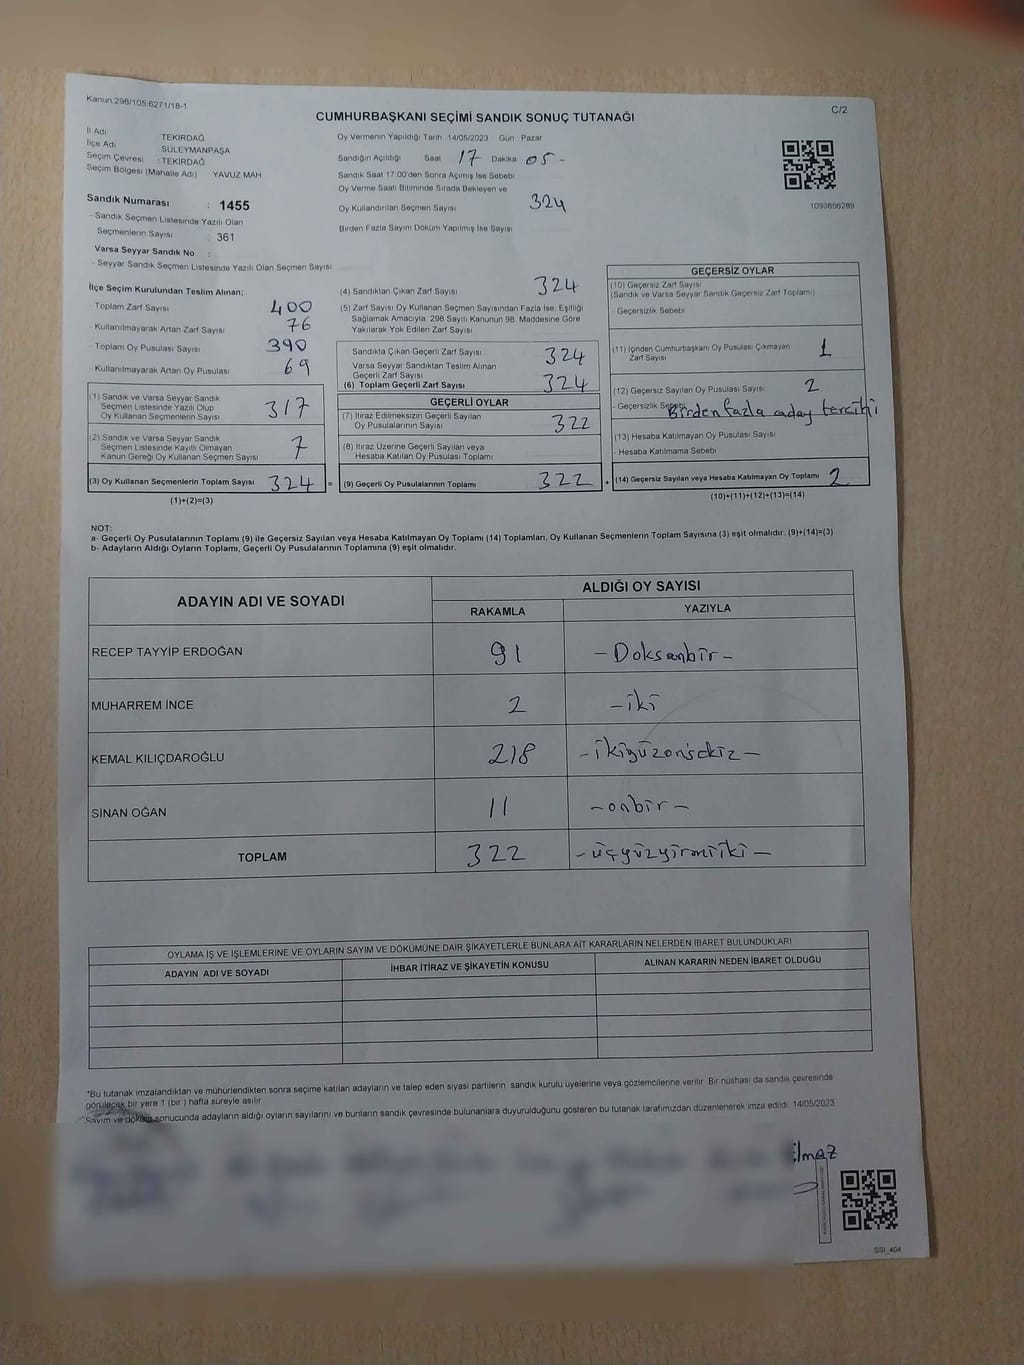 Kanun:298/105;6271/18-1
C/2
CUMHURBAŞKANI SEÇİMİ SANDIK SONUÇ TUTANAĞI
İl Adı : TEKİRDAĞ
İlçe Adı : SÜLEYMANPAŞA
Seçim Çevresi : TEKİRDAĞ
Seçim Bölgesi (Mahalle Adı) YAVUZ MAH
Sandık Numarası : 1455
- Sandık Seçmen Listesinde Yazılı Olan
Seçmenlerin Sayısı : 361
Varsa Seyyar Sandık No :
- Seyyar Sandık Seçmen Listesinde Yazılı Olan Seçmen Sayısı
Oy Vermenin Yapıldığı Tarih 14/05/2023 Gün Pazar
Sandığın Açıldığı Saat 17 Dakika 05-
Sandık Saat 17:00'den Sonra Açılmış İse Sebebi
Oy Verme Saati Bitiminde Sırada Bekleyen ve
Oy Kullandırılan Seçmen Sayısı 324
Birden Fazla Sayım Döküm Yapılmış İse Sayısı
1093856289
İlçe Seçim Kurulundan Teslim Alınan;
- Toplam Zarf Sayısı 400
- Kullanılmayarak Artan Zarf Sayısı 76
- Toplam Oy Pusulası Sayısı 390
- Kullanılmayarak Artan Oy Pusulası 69
(1) Sandık ve Varsa Seyyar Sandık
Seçmen Listesinde Yazılı Olup
Oy Kullanan Seçmenlerin Sayısı 317
(2) Sandık ve Varsa Seyyar Sandık
Seçmen Listesinde Kayıtlı Olmayan
Kanun Gereği Oy Kullanan Seçmen Sayısı 7
(3) Oy Kullanan Seçmenlerin Toplam Sayısı 324 =
(1)+(2)=(3)
(4) Sandıktan Çıkan Zarf Sayısı 324
(5) Zarf Sayısı Oy Kullanan Seçmen Sayısından Fazla İse, Eşitliği
Sağlamak Amacıyla, 298 Sayılı Kanunun 98. Maddesine Göre
Yakılarak Yok Edilen Zarf Sayısı
Sandıkta Çıkan Geçerli Zarf Sayısı 324
Varsa Seyyar Sandıktan Teslim Alınan
Geçerli Zarf Sayısı
(6) Toplam Geçerli Zarf Sayısı 324
GEÇERLİ OYLAR
(7) İtiraz Edilmeksizin Geçerli Sayılan
Oy Pusulalarının Sayısı 322
(8) İtiraz Üzerine Geçerli Sayılan veya
Hesaba Katılan Oy Pusulası Toplamı
(9) Geçerli Oy Pusulalarının Toplamı 322 +
GEÇERSİZ OYLAR
(10) Geçersiz Zarf Sayısı
(Sandık ve Varsa Seyyar Sandık Geçersiz Zarf Toplamı)
- Geçersizlik Sebebi
(11) İçinden Cumhurbaşkanı Oy Pusulası Çıkmayan
Zarf Sayısı 1
(12) Geçersiz Sayılan Oy Pusulası Sayısı 2
- Geçersizlik Sebebi Birden fazla aday tercihi
(13) Hesaba Katılmayan Oy Pusulası Sayısı
- Hesaba Katılmama Sebebi
(14) Geçersiz Sayılan veya Hesaba Katılmayan Oy Toplamı 2
(10)+(11)+(12)+(13)=(14)
NOT:
a- Geçerli Oy Pusulalarının Toplamı (9) ile Geçersiz Sayılan veya Hesaba Katılmayan Oy Toplamı (14) Toplamları, Oy Kullanan Seçmenlerin Toplam Sayısına (3) eşit olmalıdır. (9)+(14)=(3)
b- Adayların Aldığı Oyların Toplamı, Geçerli Oy Pusulalarının Toplamına (9) eşit olmalıdır.
ADAYIN ADI VE SOYADI
ALDIĞI OY SAYISI
RAKAMLA YAZIYLA
RECEP TAYYİP ERDOĞAN 91 -Doksanbir-
MUHARREM İNCE 2 -iki
KEMAL KILIÇDAROĞLU 218 -ikiyüzonsekiz-
SİNAN OĞAN 11 -onbir-
TOPLAM 322 -üçyüzyirmiiki-
OYLAMA İŞ VE İŞLEMLERİNE VE OYLARIN SAYIM VE DÖKÜMÜNE DAİR ŞİKAYETLERLE BUNLARA AİT KARARLARIN NELERDEN İBARET BULUNDUKLARI
ADAYIN ADI VE SOYADI İHBAR İTİRAZ VE ŞİKAYETİN KONUSU ALINAN KARARIN NEDEN İBARET OLDUĞU
*Bu tutanak imzalandıktan ve mühürlendikten sonra seçime katılan adayların ve talep eden siyasi partilerin sandık kurulu üyelerine veya gözlemcilerine verilir. Bir nüshası da sandık çevresinde
görülecek bir yere 1 (bir ) hafta süreyle asılır.
Sayım ve döküm sonucunda adayların aldığı oyların sayılarını ve bunların sandık çevresinde bulunanlara duyurulduğunu gösteren bu tutanak tarafımızdan düzenlenerek imza edildi. 14/05/2023
SSI_404